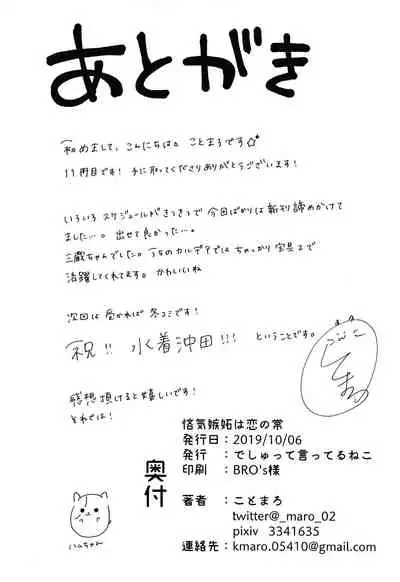 あとがき
初めまして、こんにちは。ことまろです☆
11冊目です! 手に取ってくださりありがとうございます!
いろいろスケジュールがきつきつで今回ばかりは新刊諦めかけて
ました…。出せて良かった…。
三蔵ちゃんでした。うちのカルデアではちゃっかり宝具2で
活躍してくれてます。かわいいね
次回は受かれば冬コミです!
祝!! 水着沖田!!! ということです。
感想頂けると嬉しいです!
それでは!
ハムちゃん
奥付
悋気嫉妬は恋の常
発行日:2019/10/06
発行 :でしゅって言ってるねこ
印刷 :BRO's様
著者 :ことまろ
twitter@_maro_02
pixiv 3341635
連絡先:kmaro.05410@gmail.com